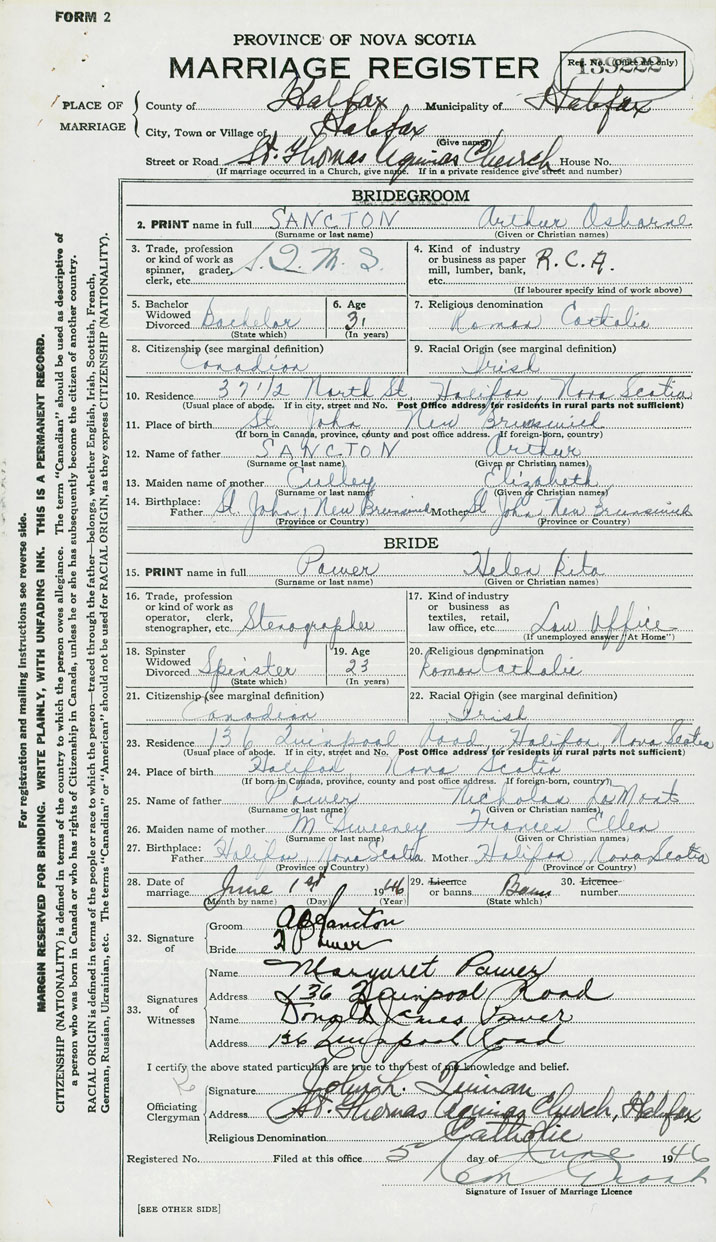 FORM 2
PROVINCE OF NOVA SCOTIA
MARRIAGE REGISTER
Reg. No. (Office use only)
139222
PLACE OF MARRIAGE
County of Halifax Municipality of Halifax
City, Town or Village of Halifax
(Give name)
Street or Road St. Thomas Aquinas Church House No.
(If marriage occurred in a Church, give name. If in a private residence give street and number)
BRIDEGROOM
2. PRINT name in full SANCTON Arthur Osborne
(Surname or last name) (Given or Christian names)
3. Trade, profession or kind of work as spinner, grader, clerk, etc. S.Q.M.S.
4. Kind of industry or business as paper mill, lumber, bank, etc. R.C.A.
(If labourer specify kind of work above)
5. Bachelor Widowed Divorced Bachelor
(State which)
6. Age 31
(In years)
7. Religious denomination
Roman Catholic
8. Citizenship (see marginal definition)
Canadian
9. Racial Origin (see marginal definition)
Irish
10. Residence 37 1/2 North St, Halifax, Nova Scotia
(Usual place of abode. If in city, street and No. Post Office address for residents in rural parts not sufficient)
11. Place of birth St. John New Brunswick
(If born in Canada, province, county and post office address. If foreign-born, country)
12. Name of father SANCTON Arthur
(Surname or last name) (Given or Christian names)
13. Maiden name of mother Culley Elizabeth
(Surname or last name) (Given or Christian names)
14. Birthplace: Father St. John, New Brunswick Mother St. John, New Brunswick
(Province or Country) (Province or Country)
BRIDE
15. PRINT name in full Power Helen Rita
(Surname or last name) (Given or Christian names)
16. Trade, profession or kind of work as operator, clerk, stenographer, etc. Stenographer
17. Kind of industry or business as textiles, retail, law office, etc. Law Office
(If unemployed answer "At Home")
18. Spinster Widowed Divorced Spinster
(State which)
19. Age 23
(In years)
20. Religious denomination
Roman Catholic
21. Citizenship (see marginal definition)
Canadian
22. Racial Origin (see marginal definition)
Irish
23. Residence 136 Quinpool Road, Halifax, Nova Scotia
(Usual place of abode. If in city, street and No. Post Office address for residents in rural parts not sufficient)
24. Place of birth Halifax, Nova Scotia
(If born in Canada, province, county and post office address. If foreign-born, country)
25. Name of father Power Nicholas
(Surname or last name) (Given or Christian names)
26. Maiden name of mother McSweeney Frances Ellen
(Surname or last name) (Given or Christian names)
27. Birthplace: Father Halifax, Nova Scotia Mother Halifax, Nova Scotia
(Province or Country) (Province or Country)
28. Date of marriage June 1st 1946
(Month by name) (Day) (Year)
29. Licence or banns Banns
(State which)
30. Licence number
32. Signature of
Groom AO Sancton
Bride Power
33. Signatures of Witnesses
Name Margaret Power
Address 136 Quinpool Road
Name Donald James Power
Address 136 Quinpool Road
I certify the above stated particulars are true to the best of my knowledge and belief.
Officiating Clergyman
Signature John L. Quinan
Address St. Thomas Aquinas Church, Halifax
Religious Denomination Catholic
Registered No. Filed at this office 5 day of June 1946
Signature of Issuer of Marriage Licence
[SEE OTHER SIDE]
For registration and mailing instructions see reverse side.
MARGIN RESERVED FOR BINDING. WRITE PLAINLY, WITH UNFADING INK. THIS IS A PERMANENT RECORD.
CITIZENSHIP (NATIONALITY) is defined in terms of the country to which the person owes allegiance. The term "Canadian" should be used as descriptive of
a person who was born in Canada or who has rights of Citizenship in Canada, unless he or she has subsequently become the citizen of another country.
RACIAL ORIGIN is defined in terms of the people or race to which the person—traced through the father—belongs, whether English, Irish, Scottish, French,
German, Russian, Ukrainian, etc. The terms "Canadian" or "American" should not be used for RACIAL ORIGIN, as they express CITIZENSHIP (NATIONALITY).